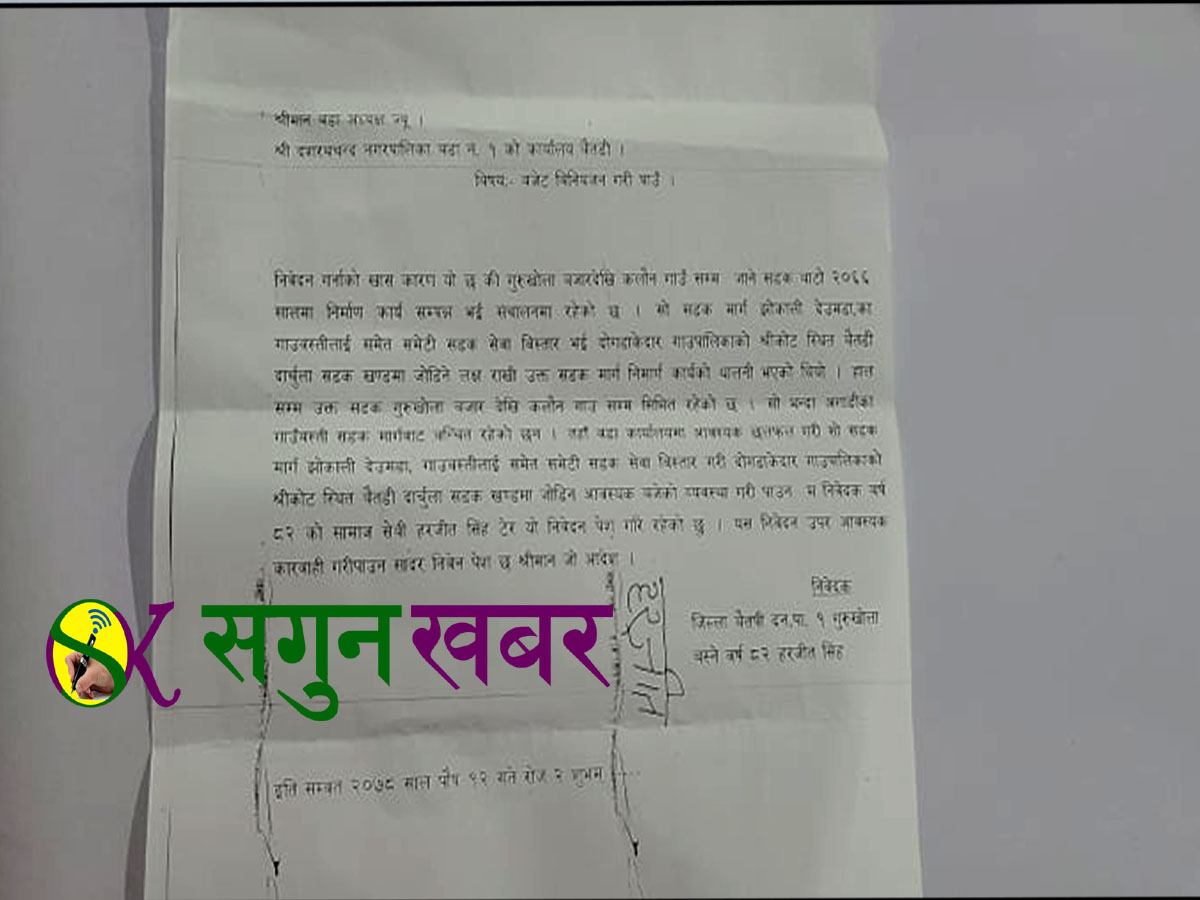 श्रीमान वडा अध्यक्ष ज्यू ।
श्री दशरथचन्द नगरपालिका वडा न. १ को कार्यालय बैतडी ।
विषय:- बजेट बिनियजन गरी पाउँ ।
निबेदन गर्नाको खास कारण यो छ की गुरुखोला बजारदेखि कलौन गाउँ सम्म जाने सडक बाटो २०६६
सालमा निर्माण कार्य सम्पन्न भई संचालनमा रहेको छ । सो सडक मार्ग झोकाली देउमडा,का
गाउवस्तीलाई समेत समेटी सडक सेवा बिस्तार भई दोगडाकेदार गाउपालिकाको श्रीकोट स्थित बैतडी
दार्चुला सडक खण्डमा जोडिने लक्ष राखी उक्त सडक मार्ग निमार्ण कार्यको थालनी भएको थियो । हाल
सम्म उक्त सडक गुरुखोला बजार देखि कलौन गाउ सम्म सिमित रहेको छ । सो भन्दा अगाडीका
गाउँवस्ती सडक मार्गबाट बन्चित रहेको छन । तहाँ वडा कार्यालयमा आवस्यक छलफल गरी सो सडक
मार्ग झोकाली देउमडा, गाउवस्तीलाई समेत समेटी सडक सेवा बिस्तार गरी दोगडाकेदार गाउपालिकाको
श्रीकोट स्थित बैतडी दार्चुला सडक खण्डमा जोडिन आवस्यक बजेको व्यवस्था गरी पाउन म निबेदक बर्ष
८२ को सामाज सेवी हरजीत सिंह टेर यो निबेदन पेश गरि रहेको छु । यस निबेदन उपर आवस्यक
कारवाही गरीपाउन सादर निबेन पेश छ श्रीमान जो आदेश ।
निवेदक
जिल्ला बैतडी दन.पा. १ गुरुखोला
बस्ने बर्ष ८२ हरजीत सिंह
हरजीत
SK सगुन खबर
इति सम्बत २०७८ साल पौष १२ गते रोज २ शुभम्